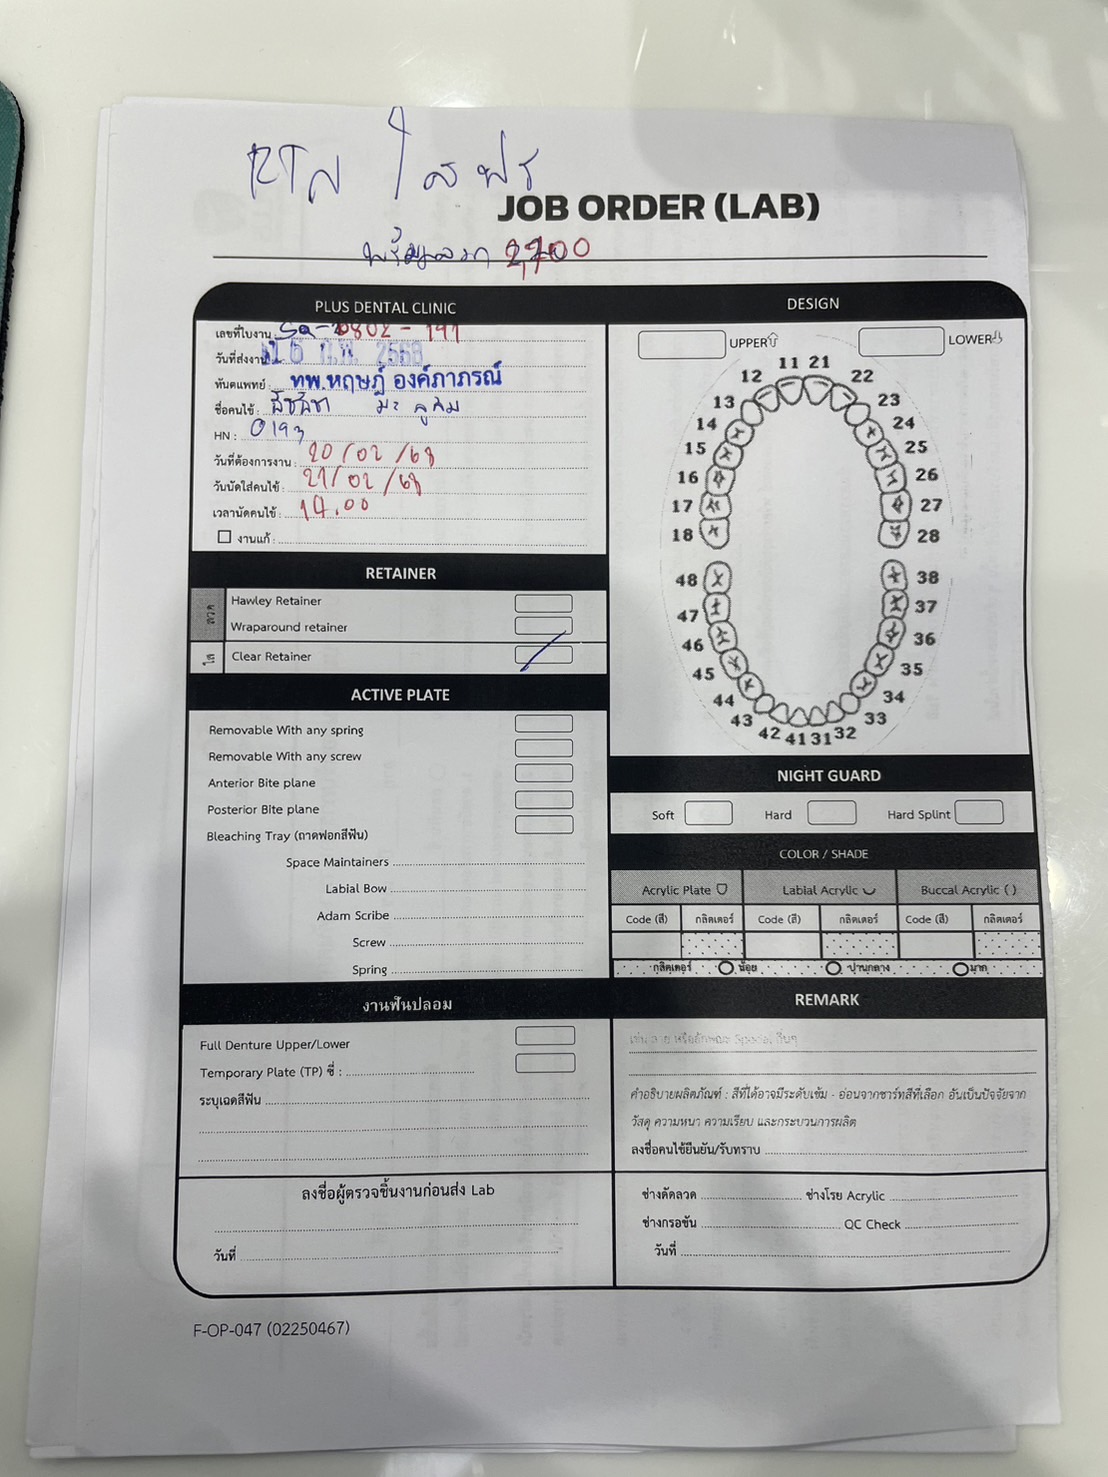 RTN ใส ฟร
JOB ORDER (LAB)
2,700
PLUS DENTAL CLINIC
เลขที่ใบงาน : 0802 - 191
วันที่ส่งงาน 16 ก.พ. 2568
ทันตแพทย์ : ทพ.หฤษฎ์ องค์ภาภรณ์
ชื่อคนไข้ :
HN : 0193
วันที่ต้องการงาน : 20/02/68
วันนัดใส่คนไข้ : 21/02/68
เวลานัดคนไข้ : 14.00
งานแก้ :
RETAINER
ลวด
Hawley Retainer
Wraparound retainer
ใส
Clear Retainer
ACTIVE PLATE
Removable With any spring
Removable With any screw
Anterior Bite plane
Posterior Bite plane
Bleaching Tray (ถาดฟอกสีฟัน)
Space Maintainers
Labial Bow
Adam Scribe
Screw
Spring
งานฟันปลอม
Full Denture Upper/Lower
Temporary Plate (TP) ซี่ :
ระบุเฉดสีฟัน
ลงชื่อผู้ตรวจชิ้นงานก่อนส่ง Lab
วันที่
DESIGN
UPPER LOWER
11 21
12 22
13 23
14 24
15 25
16 26
17 27
18 28
48 38
47 37
46 36
45 35
44 34
43 33
42 41 31 32
NIGHT GUARD
Soft Hard Hard Splint
COLOR / SHADE
Acrylic Plate Labial Acrylic Buccal Acrylic ( )
Code (สี) กลิตเตอร์ Code (สี) กลิตเตอร์ Code (สี) กลิตเตอร์
กลิตเตอร์ น้อย ปานกลาง มาก
REMARK
เช่น ลาย หรือลักษณะ Special อื่นๆ
คำอธิบายผลิตภัณฑ์ : สีที่ได้อาจมีระดับเข้ม - อ่อนจากชาร์ทสีที่เลือก อันเป็นปัจจัยจาก
วัสดุ ความหนา ความเรียบ และกระบวนการผลิต
ลงชื่อคนไข้ยืนยัน/รับทราบ
ช่างดัดลวด ช่างโรย Acrylic
ช่างกรอขัน QC Check
วันที่
F-OP-047 (02250467)